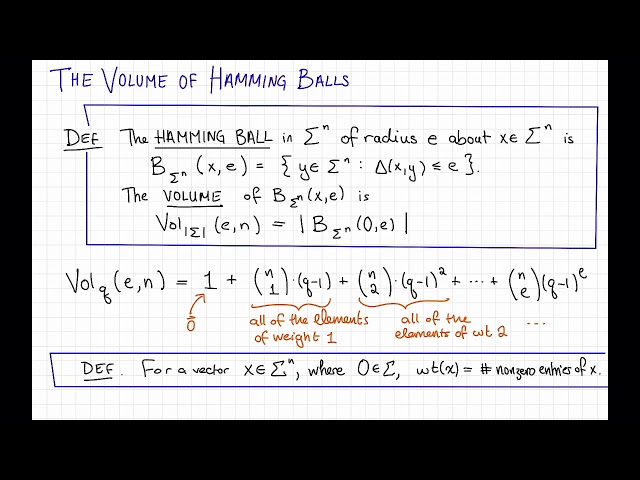 THE VOLUME OF HAMMING BALLS
DEF The HAMMING BALL in Σⁿ of radius e about x∈Σⁿ is
B_Σⁿ(x,e) = { y∈Σⁿ : Δ(x,y) ≤ e }.
The VOLUME of B_Σⁿ(x,e) is
Vol_|Σ|(e,n) = | B_Σⁿ(0,e) |
Vol_q(e,n) = 1 + (n 1)·(q-1) + (n 2)·(q-1)² + ... + (n e)(q-1)^e
0⃗ all of the elements of weight 1 all of the elements of wt 2 ...
DEF. For a vector x∈Σⁿ, where 0∈Σ, wt(x) = # nonzero entries of x.